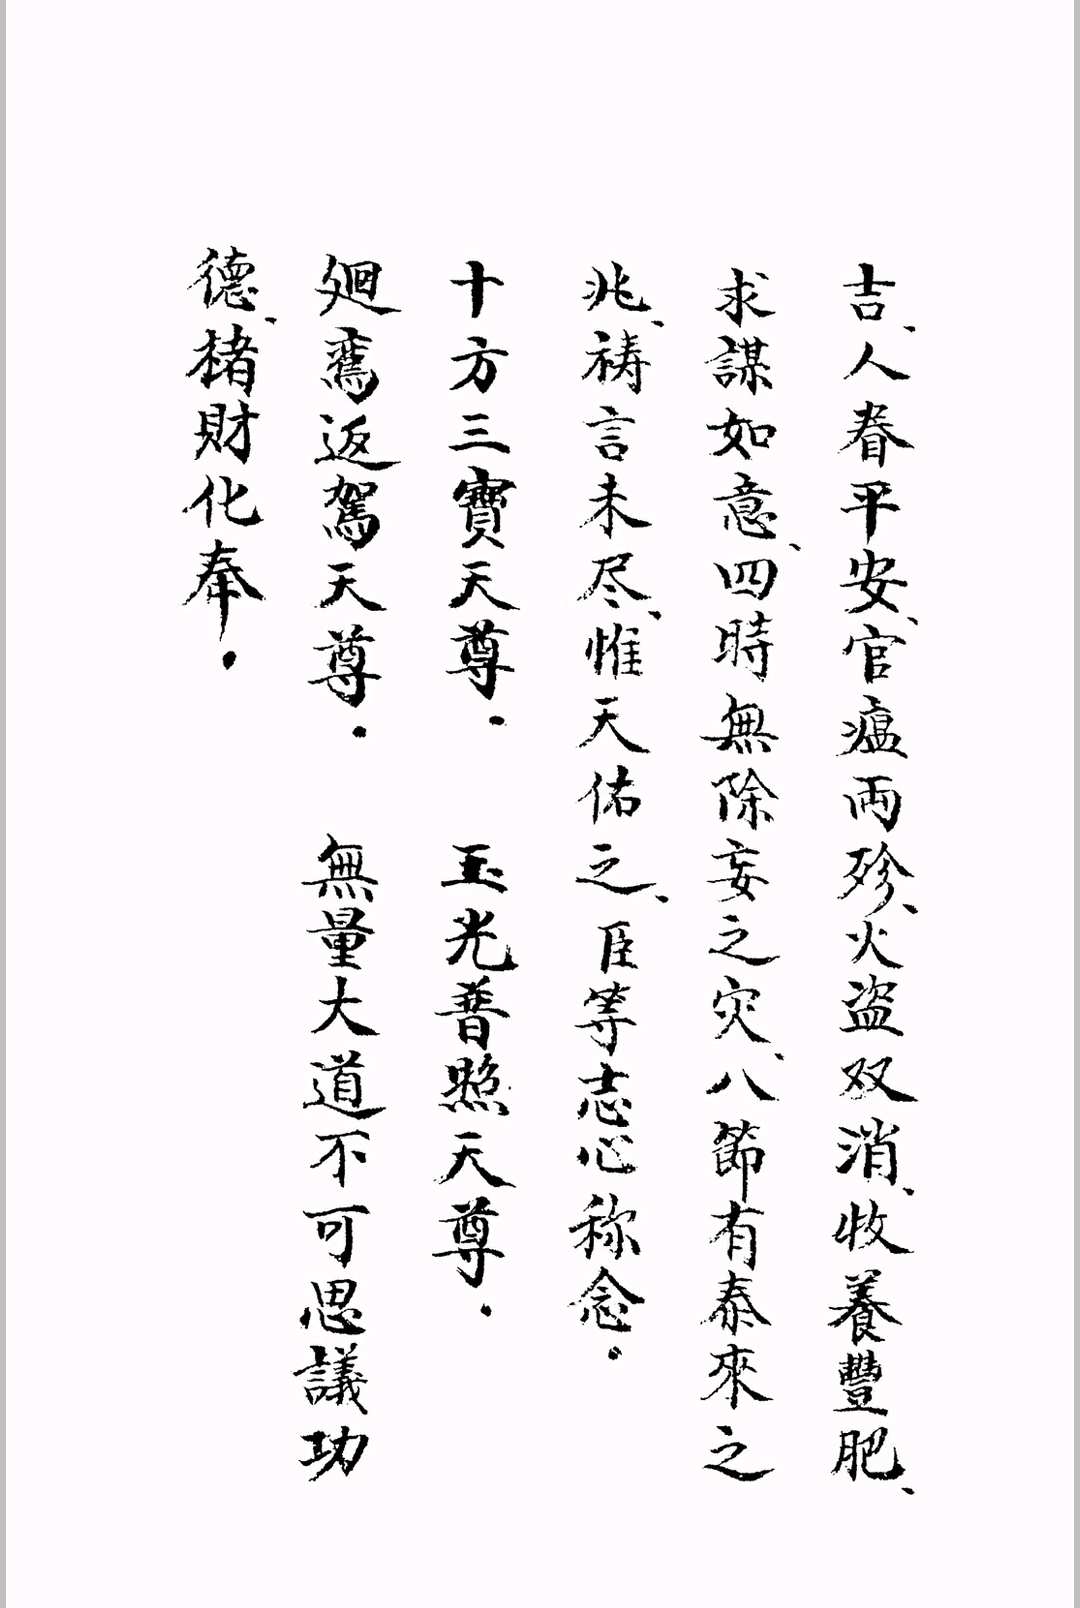 吉、人眷平安、官瘟両殄、火盗双消、收養豐肥、
求謀如意、四時無除妄之灾、八節有泰來之
兆、祷言未尽、惟天佑之、臣等志心称念．
十方三寶天尊． 玉光普照天尊．
廻鸾返駕天尊． 無量大道不可思議功
德、楮財化奉．